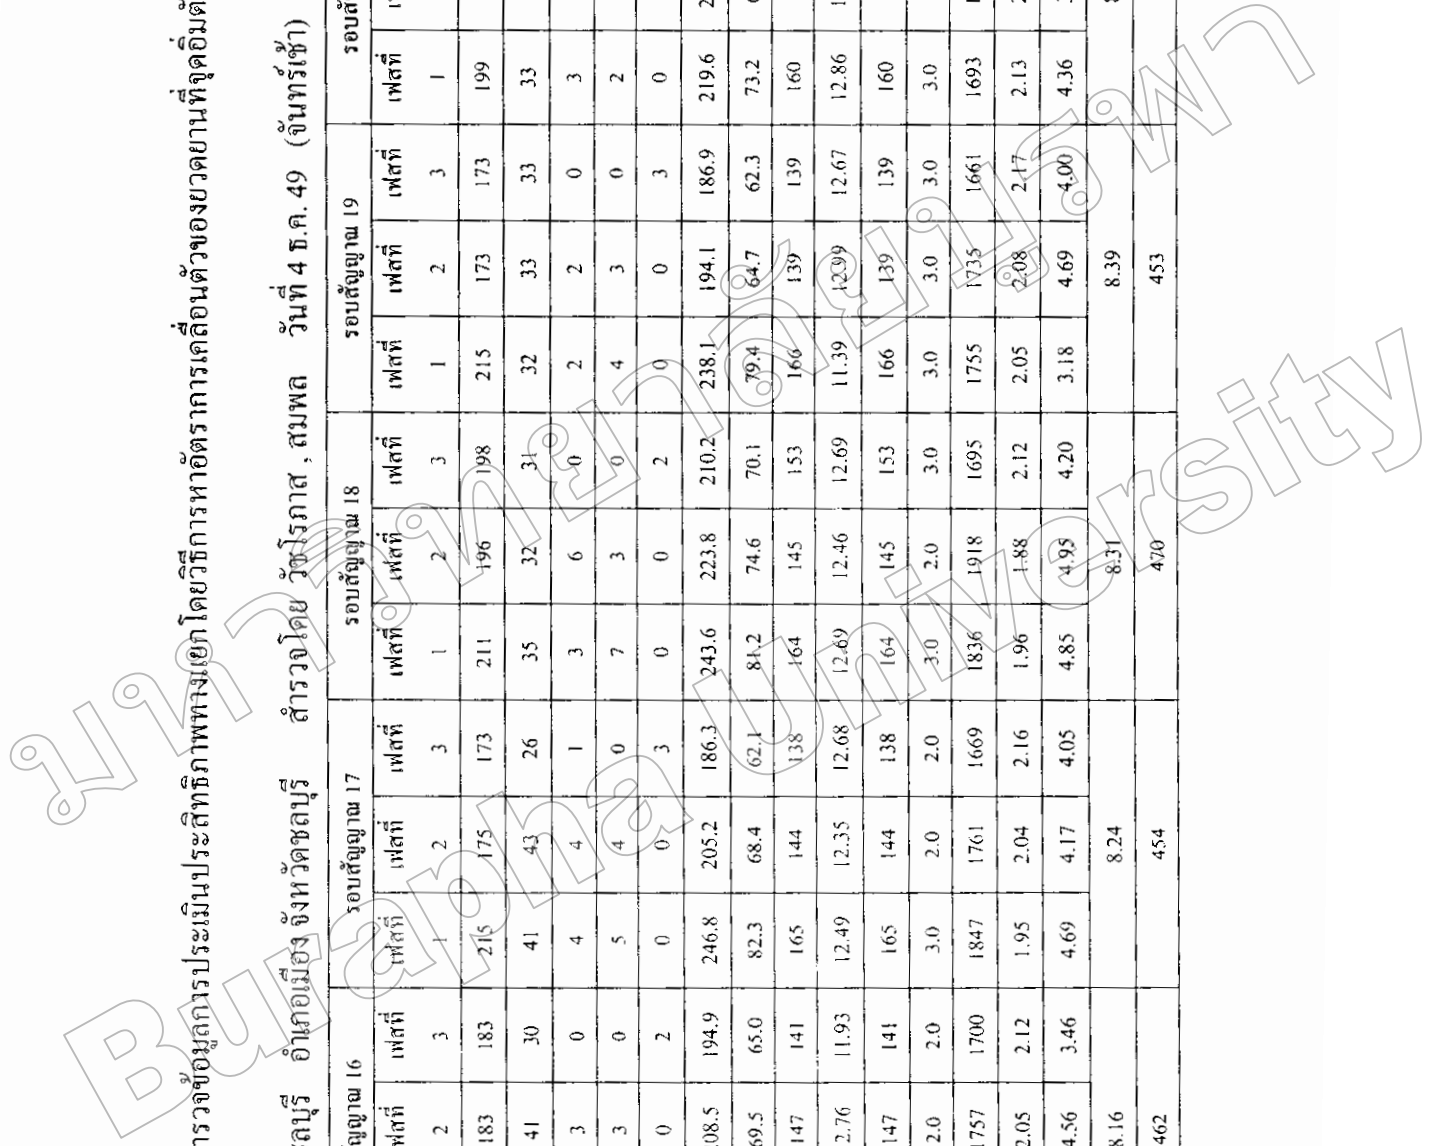 ารวจข้อมูลการประเมินประสิทธิภาพทางแยกโดยวิธีการหาอัตราการเคลื่อนตัวของยวดยานที่จุดอิ่มตั
ลบุรี อำเภอเมือง จังหวัดชลบุรี สำรวจโดย วัชโรภาส , สมพล วันที่ 4 ธ.ค. 49 (จันทร์เช้า)
ัญญาณ 16 รอบสัญญาณ 17 รอบสัญญาณ 18 รอบสัญญาณ 19 รอบสั
เฟสที่ เฟสที่ เฟสที่ เฟสที่ เฟสที่ เฟสที่ เฟสที่ เฟสที่ เฟสที่ เฟสที่ เฟสที่ เฟสที่
2 3 1 2 3 1 2 3 1 2 3 1
183 183 215 175 173 211 196 198 215 173 173 199
41 30 41 43 26 35 32 31 32 33 33 33
3 0 4 4 1 3 6 0 2 2 0 3
3 0 5 4 0 7 3 0 4 3 0 2
0 2 0 0 3 0 0 2 0 0 3 0
08.5 194.9 246.8 205.2 186.3 243.6 223.8 210.2 238.1 194.1 186.9 219.6
69.5 65.0 82.3 68.4 62.1 81.2 74.6 70.1 79.4 64.7 62.3 73.2
147 141 165 144 138 164 145 153 166 139 139 160
2.76 11.93 12.49 12.35 12.68 12.69 12.46 12.69 11.39 12.99 12.67 12.86
147 141 165 144 138 164 145 153 166 139 139 160
2.0 2.0 3.0 2.0 2.0 3.0 2.0 3.0 3.0 3.0 3.0 3.0
1757 1700 1847 1761 1669 1836 1918 1695 1755 1735 1661 1693
2.05 2.12 1.95 2.04 2.16 1.96 1.88 2.12 2.05 2.08 2.17 2.13
4.56 3.46 4.69 4.17 4.05 4.85 4.95 4.20 3.18 4.69 4.00 4.36
8.16 8.24 8.31 8.39
462 454 470 453
มหาวิทยาลัยบูรพา
Burapha University